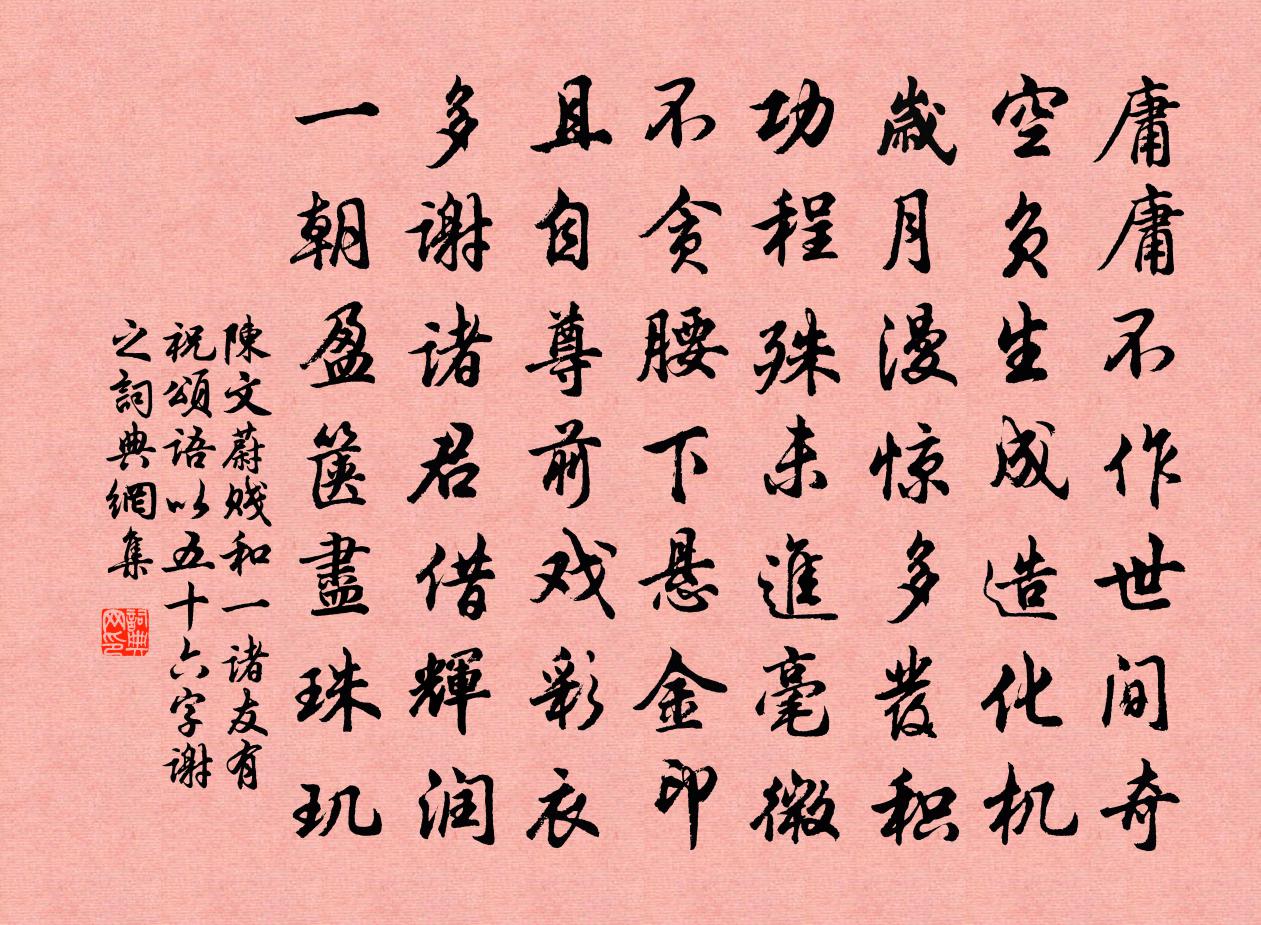 庸庸不作世间奇
空負生成造化机
歲月漫惊多發积
功程殊未進毫微
不贪腰下悬金印
且自尊前戏彩衣
多謝诸君借輝润
一朝盈箧盡珠玑
陳文蔚贱和一诸友有
祝頌語以五十六字谢
之詞典網集
詞典网印